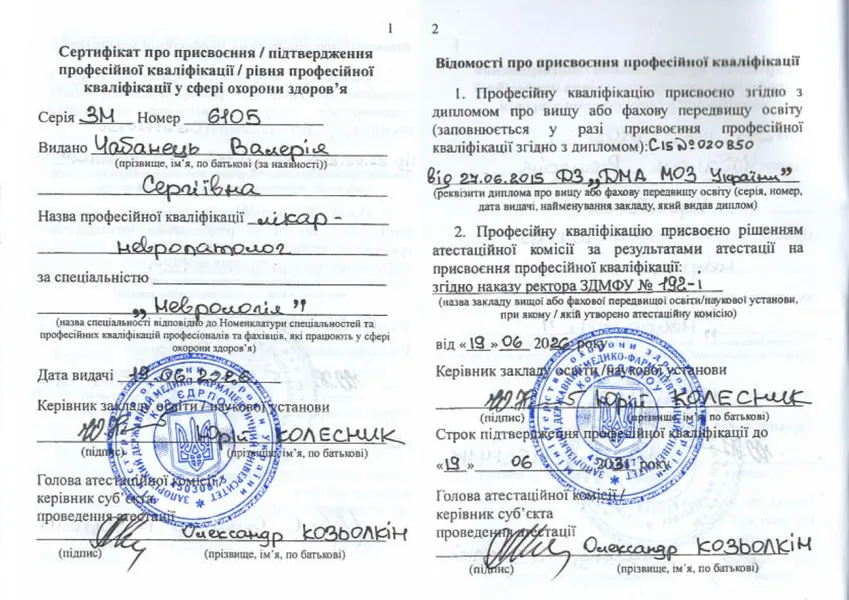 1
Сертифікат про присвоєння / підтвердження
професійної кваліфікації / рівня професійної
кваліфікації у сфері охорони здоров’я
Серія ЗМ Номер 6105
Видано Чабанець Валерія
(прізвище, ім’я, по батькові (за наявності))
Сергіївна
Назва професійної кваліфікації лікар -
невропатолог
за спеціальністю
„Неврологія”
(назва спеціальності відповідно до Номенклатури спеціальностей та
професійних кваліфікацій професіоналів та фахівців, які працюють у сфері
охорони здоров’я)
Дата видачі 19.06.2026
Керівник закладу освіти / наукової установи
Юрій КОЛЕСНИК
(підпис) (прізвище, ім’я, по батькові)
Голова атестаційної комісії /
керівник суб’єкта
проведення атестації
Олександр КОЗЬОЛКІН
(підпис) (прізвище, ім’я, по батькові)
2
Відомості про присвоєння професійної кваліфікації
1. Професійну кваліфікацію присвоєно згідно з
дипломом про вищу або фахову передвищу освіту
(заповнюється у разі присвоєння професійної
кваліфікації згідно з дипломом):С15 №020850
від 27.06.2015 ДЗ „ДМА МОЗ України”
(реквізити диплома про вищу або фахову передвищу освіту (серія, номер,
дата видачі, найменування закладу, який видав диплом)
2. Професійну кваліфікацію присвоєно рішенням
атестаційної комісії за результатами атестації на
присвоєння професійної кваліфікації:
згідно наказу ректора ЗДМФУ № 192-1
(назва закладу вищої або фахової передвищої освіти/наукової установи,
при якому / якій утворено атестаційну комісію)
від «19 » 06 2026 року
Керівник закладу освіти /наукової установи
Юрій КОЛЕСНИК
(підпис) (прізвище, ім’я, по батькові)
Строк підтвердження професійної кваліфікації до
«19 » 06 2031 року
Голова атестаційної комісії /
керівник суб’єкта
проведення атестації
Олександр КОЗЬОЛКІН
(підпис) (прізвище, ім’я, по батькові)